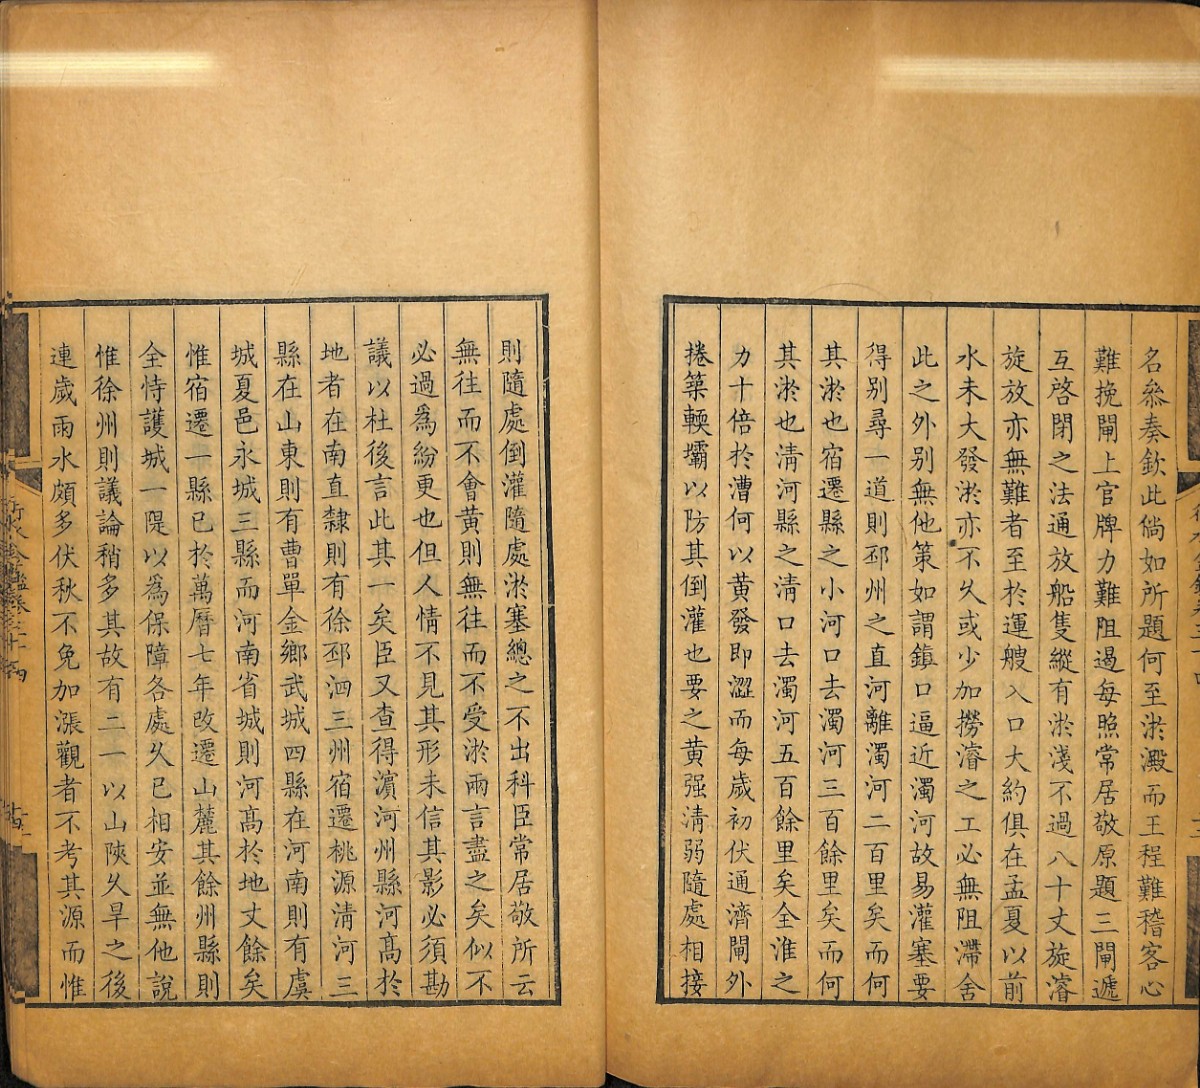 名叅奏欽此倘如所題何至淤澱而王程難稽客心
難挽閘上官牌力難阻遏每照常居敬原題三閘遞
互啓閉之法通放船隻縱有淤淺不過八十丈旋濬
旋放亦無難者至於運艘入口大約俱在孟夏以前
水未大發淤亦不久或少加撈濬之工必無阻滯舍
此之外別無他策如謂鎮口逼近濁河故易灌塞要
得別尋一道則邳州之直河離濁河二百里矣而何
其淤也宿遷縣之小河口去濁河三百餘里矣而何
其淤也淸河縣之淸口去濁河五百餘里矣全淮之
力十倍於漕何以黃發即澀而每歲初伏通濟閘外
捲築輭壩以防其倒灌也要之黃强淸弱隨處相接
則隨處倒灌隨處淤塞總之不出科臣常居敬所云
無往而不會黃則無往而不受淤兩言盡之矣似不
必過爲紛更也但人情不見其形未信其影必須勘
議以杜後言此其一矣臣又查得濵河州縣河高於
地者在南直隸則有徐邳泗三州宿遷桃源淸河三
縣在山東則有曹單金鄉武城四縣在河南則有虞
城夏邑永城三縣而河南省城則河高於地丈餘矣
惟宿遷一縣已於萬曆七年改遷山麓其餘州縣則
全恃護城一隄以爲保障各處久已相安並無他說
惟徐州則議論稍多其故有二一以山陝久旱之後
連歲雨水頗多伏秋不免加漲觀者不考其源而惟